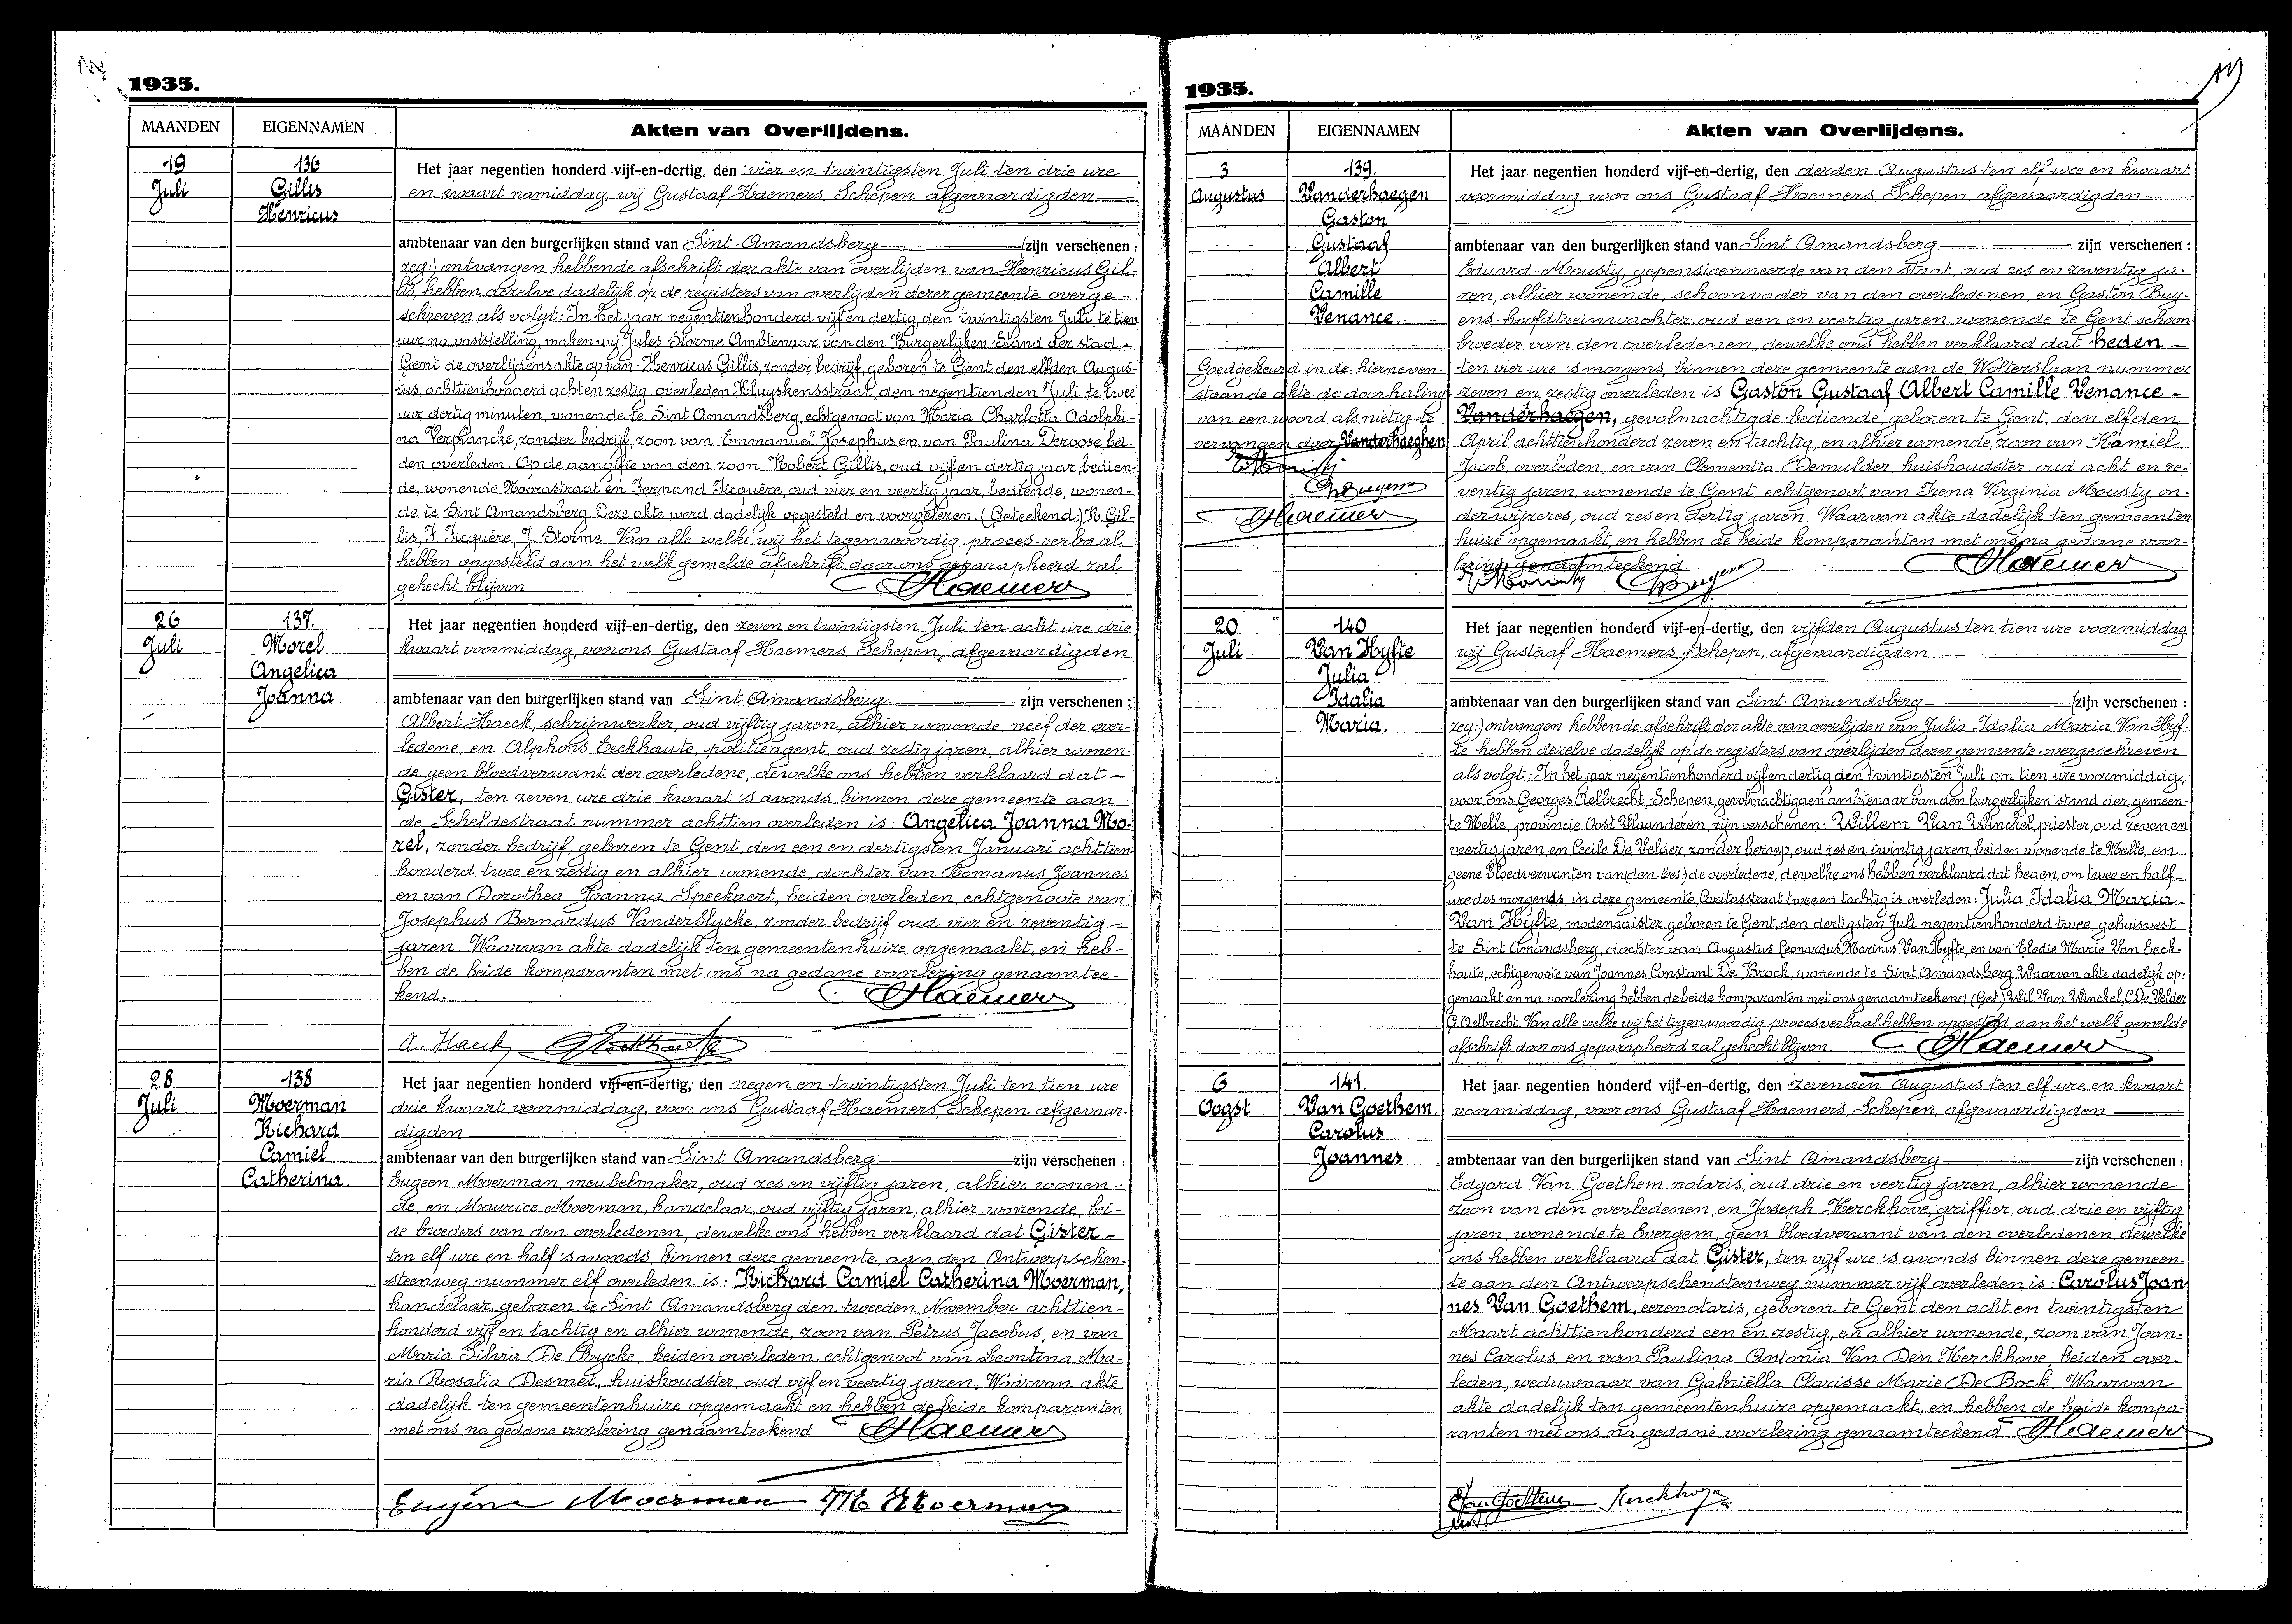 1935.
MAANDEN EIGENNAMEN Akten van Overlijdens.
19 Juli
136
Gillis
Henricus
Het jaar negentien honderd vijf-en-dertig, den vier en twintigsten Juli ten drie ure
en kwaart namiddag, wij Gustaaf Haemers, Schepen afgevaardigden
ambtenaar van den burgerlijken stand van Sint Amandsberg (zijn verschenen :
zeg:) ontvangen hebbende afschrift der akte van overlijden van Henricus Gil-
lis, hebben dezelve dadelijk op de registers van overlijden dezer gemeente overge-
schreven als volgt: In het jaar negentienhonderd vijf en dertig, den twintigsten Juli te tien
uur, na vaststelling, maken wij Jules Storme Ambtenaar van den Burgerlijken Stand der stad
Gent de overlijdensakte op van: Henricus Gillis, zonder bedrijf, geboren te Gent den elfden Augus-
tus, achttienhonderd acht en zestig, overleden Kluyskensstraat, den negentienden Juli, te twee
uur dertig minuten, wonende te Sint Amandsberg, echtgenoot van Maria Charlotta Adolphi-
na Verplancke, zonder bedrijf, zoon van Emmanuel Josephus en van Paulina Deroose, bei-
den overleden. Op de aangifte van den zoon Robert Gillis, oud vijf en dertig jaar, bedien-
de, wonende Noordstraat en Fernand Ficquère, oud vier en veertig jaar, bediende, wonen-
de te Sint Amandsberg. Deze akte werd dadelijk opgesteld en voorgelezen. (Geteekend:) R. Gil-
lis, F. Ficquère, J. Storme. Van alle welke wij het tegenwoordig proces-verbaal
hebben opgesteld aan het welk gemelde afschrift door ons geparapheerd zal
gehecht blijven
Haemers
26 Juli
137.
Morel
Angelica
Joanna
Het jaar negentien honderd vijf-en-dertig, den zeven en twintigsten Juli ten acht ure drie
kwaart voormiddag, voor ons Gustaaf Haemers, Schepen, afgevaardigden
ambtenaar van den burgerlijken stand van Sint Amandsberg zijn verschenen :
Albert Haeck, schrijnwerker, oud vijftig jaren, alhier wonende, neef der over-
ledene, en Alphons Eeckhaute, politieagent, oud zestig jaren, alhier wonen-
de, geen bloedverwant der overledene, dewelke ons hebben verklaard dat
Gister, ten zeven ure drie kwaart 's avonds binnen deze gemeente aan
de Scheldestraat nummer achttien overleden is: Angelica Joanna Mo-
rel, zonder bedrijf, geboren te Gent, den een en dertigsten Januari achttien
honderd twee en zestig en alhier wonende, dochter van Romanus Joannes
en van Dorothea Joanna Speekaert, beiden overleden, echtgenoote van
Josephus Bernardus VanderSlycke, zonder bedrijf oud vier en zeventig
jaren. Waarvan akte dadelijk ten gemeentenhuize opgemaakt, en heb-
ben de beide komparanten met ons na gedane voorlezing genaamtee-
kend.
Haemers
A. Haeck Eeckhaute
28 Juli
138
Moerman
Richard
Camiel
Catherina.
Het jaar negentien honderd vijf-en-dertig, den negen en twintigsten Juli ten tien ure
drie kwaart voormiddag, voor ons Gustaaf Haemers, Schepen afgevaar-
digden
ambtenaar van den burgerlijken stand van Sint Amandsberg zijn verschenen :
Eugeen Moerman, meubelmaker, oud zes en vijftig jaren, alhier wonen-
de, en Maurice Moerman, handelaar, oud vijftig jaren, alhier wonende, bei-
de broeders van den overledenen, dewelke ons hebben verklaard dat Gister
ten elf ure en half 's avonds, binnen deze gemeente, aan den Antwerpschen-
steenweg nummer elf overleden is: Richard Camiel Catherina Moerman,
handelaar, geboren te Sint Amandsberg den tweeden November achttien-
honderd vijf en tachtig en alhier wonende, zoon van Petrus Jacobus, en van
Maria Silvia De Rycke, beiden overleden, echtgenoot van Leontina Ma-
ria Rosalia Desmet, huishoudster, oud vijf en veertig jaren. Waarvan akte
dadelijk ten gemeentenhuize opgemaakt en hebben de beide komparanten
met ons na gedane voorlezing genaamteekend
Haemers
Eugène Moerman M. Moerman
1935.
MAANDEN EIGENNAMEN Akten van Overlijdens.
3 Augustus
139.
Vanderhaegen
Gaston
Gustaaf
Albert
Camille
Venance.
Goedgekeurd in de hierneven-
staande akte de doorhaling
van een woord als nietig te
vervangen door Vanderhaeghen
Haemers
Het jaar negentien honderd vijf-en-dertig, den derden Augustus ten elf ure en kwaart
voormiddag, voor ons Gustaaf Haemers, Schepen, afgevaardigden
ambtenaar van den burgerlijken stand van Sint Amandsberg zijn verschenen :
Eduard Mousty, gepensioenneerde van den staat, oud zes en zeventig ja-
ren, alhier wonende, schoonvader van den overledenen, en Gaston Buy-
ens, hoofdtreinwachter, oud een en veertig jaren, wonende te Gent schoon-
broeder van den overledenen, dewelke ons hebben verklaard dat heden
ten vier ure 's morgens, binnen deze gemeente aan de Wolterslaan nummer
zeven en zestig overleden is Gaston Gustaaf Albert Camille Venance
Vanderhaegen, gevolmachtigde bediende, geboren te Gent, den elfden
April achttienhonderd zeven en tachtig, en alhier wonende, zoon van Kamiel
Jacob, overleden, en van Clementia Demulder, huishoudster, oud acht en ze-
ventig jaren, wonende te Gent, echtgenoot van Irena Virginia Mousty, on-
derwijzeres, oud zes en dertig jaren. Waarvan akte dadelijk ten gemeenten
huize opgemaakt, en hebben de beide komparanten met ons na gedane voor-
lezing genaamteekend.
E. Mousty Buyens Haemers
20 Juli
140
Van Hyfte
Julia
Idalia
Maria.
Het jaar negentien honderd vijf-en-dertig, den vijfden Augustus ten tien ure voormiddag
wij Gustaaf Haemers, Schepen, afgevaardigden
ambtenaar van den burgerlijken stand van Sint Amandsberg (zijn verschenen :
zeg:) ontvangen hebbende afschrift der akte van overlijden van Julia Idalia Maria Van Hyf-
te hebben dezelve dadelijk op de registers van overlijden dezer gemeente overgeschreven
als volgt: In het jaar negentienhonderd vijf en dertig den twintigsten Juli om tien ure voormiddag,
voor ons Georges Aelbrecht, Schepen, gevolmachtigden ambtenaar van den burgerlijken stand der gemeen-
te Melle, provincie Oost Vlaanderen, zijn verschenen: Willem Van Winckel, priester, oud zeven en
veertig jaren, en Cecile De Velder, zonder beroep, oud zes en twintig jaren, beiden wonende te Melle, en
geene bloedverwanten van (den-lees) de overledene, dewelke ons hebben verklaard dat heden, om twee en half
ure des morgends, in deze gemeente, Caritasstraat twee en tachtig is overleden: Julia Idalia Maria
Van Hyfte, modenaaister, geboren te Gent, den dertigsten Juli negentienhonderd twee, gehuisvest
te Sint Amandsberg, dochter van Augustus Leonardus Marinus Van Hyfte, en van Elodie Marie Van Eeck-
haute, echtgenoote van Joannes Constant De Brock, wonende te Sint Amandsberg. Waarvan akte dadelijk op-
gemaakt en na voorlezing hebben de beide komparanten met ons genaamteekend (Get.) Wil. Van Winckel, C. De Velder
G. Aelbrecht. Van alle welke wij het tegenwoordig procesverbaal hebben opgesteld, aan het welk gemelde
afschrift door ons geparapheerd zal gehecht blijven.
Haemers
6 Oogst
141.
Van Goethem.
Carolus
Joannes
Het jaar negentien honderd vijf-en-dertig, den zevenden Augustus ten elf ure en kwaart
voormiddag, voor ons Gustaaf Haemers, Schepen, afgevaardigden
ambtenaar van den burgerlijken stand van Sint Amandsberg zijn verschenen :
Edgard Van Goethem, notaris, oud drie en veertig jaren, alhier wonende
zoon van den overledenen, en Joseph Kerckhove, griffier, oud drie en vijftig
jaren, wonende te Evergem, geen bloedverwant van den overledenen dewelke
ons hebben verklaard dat Gister, ten vijf ure 's avonds binnen deze gemeen-
te aan den Antwerpschensteenweg nummer vijf overleden is: Carolus Joan
nes Van Goethem, eerenotaris, geboren te Gent den acht en twintigsten
Maart achttienhonderd een en zestig, en alhier wonende, zoon van Joan-
nes Carolus, en van Paulina Antonia Van Den Kerckhove, beiden over-
leden, weduwnaar van Gabriëlla Clarisse Marie De Bock. Waarvan
akte dadelijk ten gemeentenhuize opgemaakt, en hebben de beide kompa-
ranten met ons na gedane voorlezing genaamteekend.
Haemers
E. Van Goethem Kerckhove